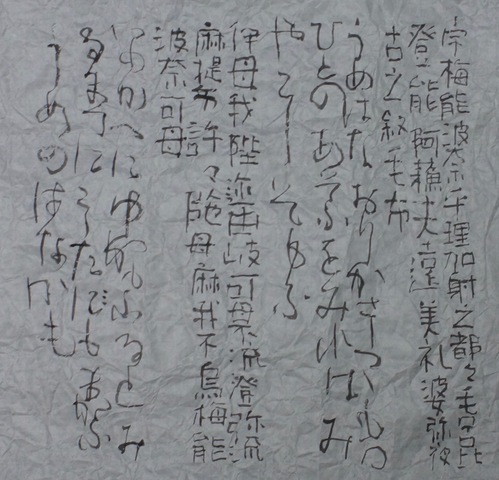 宇梅能波奈乎理加射之都々毛呂比
登能阿蘇夫遠美礼婆弥夜
古之叙毛布
うめはなおりかざしつつもろ
ひとのあそふをみればみ
やこしそもふ
伊母我陛迩由岐可母不流登弥流
麻提尓許々陀母麻我不烏梅能
波奈可母
いもかへにゆきかもふるとみ
るまてにこゝだもまがふ
うめのはなかも